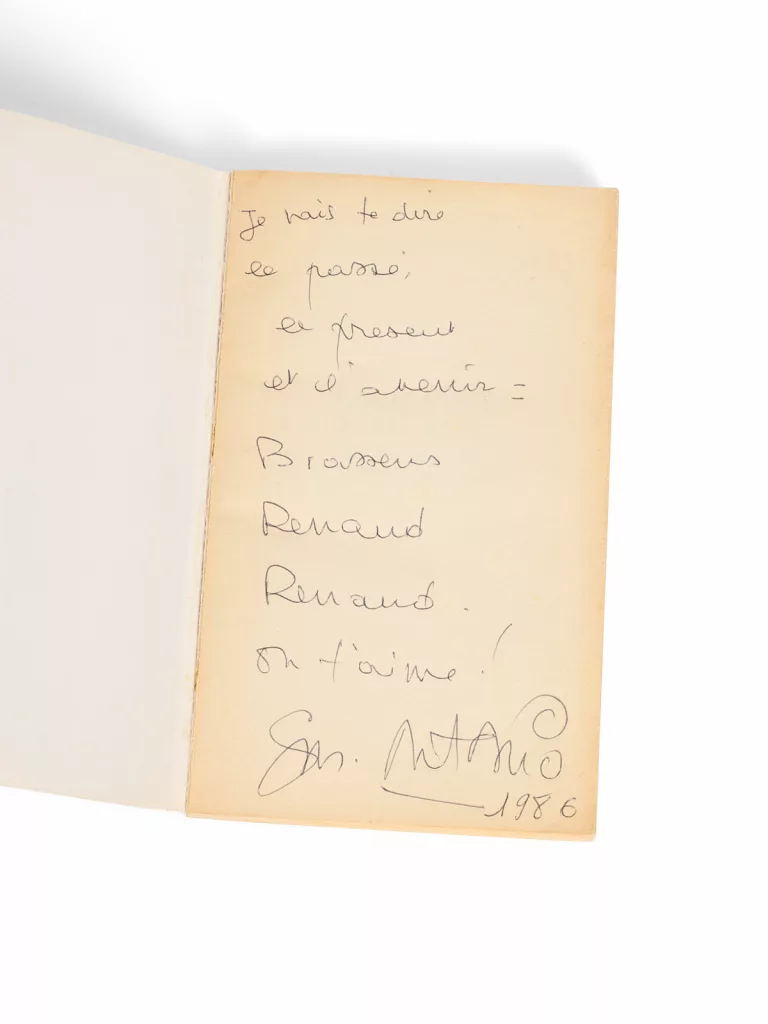 Je vais te dire
le passé,
le present
et l'avenir =
Brassens
Renaud
Renaud.
on t'aime!
San. Antonio
1986